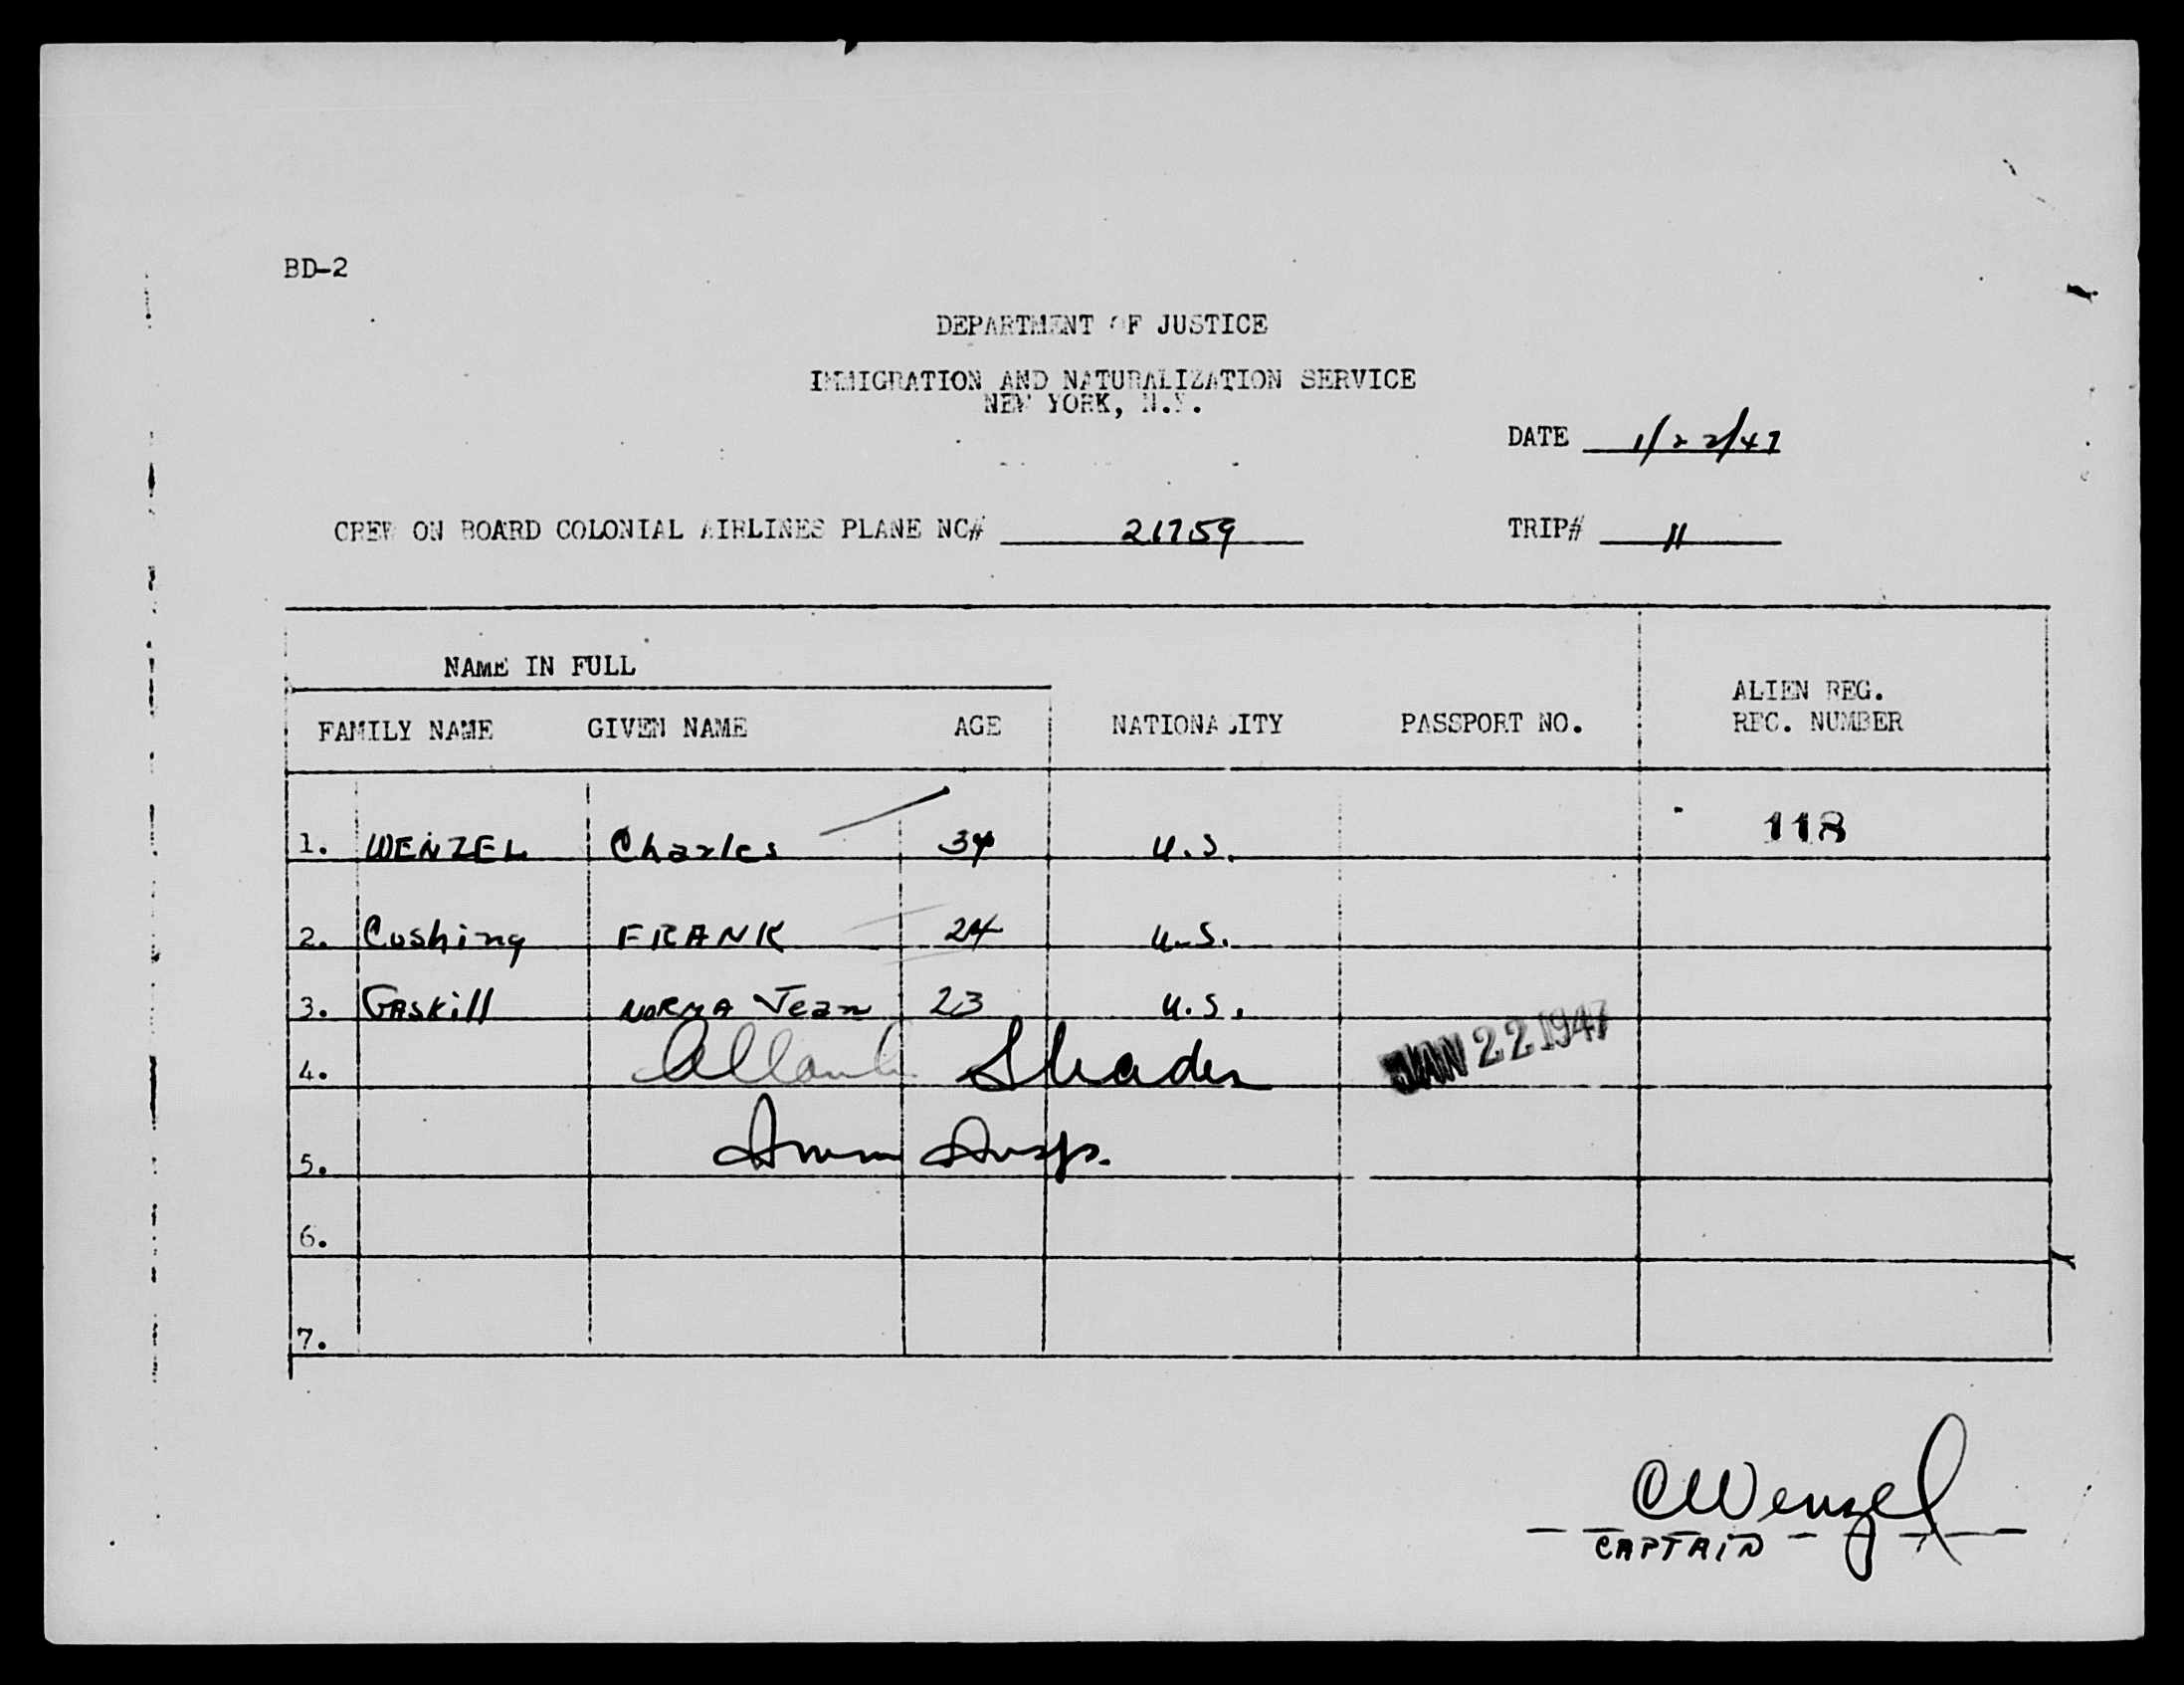 BD-2
DEPARTMENT OF JUSTICE
IMMIGRATION AND NATURALIZATION SERVICE
NEW YORK, N.Y.
DATE 1/22/47
CREW ON BOARD COLONIAL AIRLINES PLANE NC# 21759
TRIP# 11
NAME IN FULL
FAMILY NAME GIVEN NAME AGE NATIONALITY PASSPORT NO. ALIEN REG. REC. NUMBER
1. WENZEL Charles 34 U.S. 118
2. Cushing FRANK 24 U.S.
3. GASKill NORMA Jean 23 U.S.
4. Shader JAN 22 1947
5. Imm Insp.
6.
7.
CWenzel
CAPTAIN